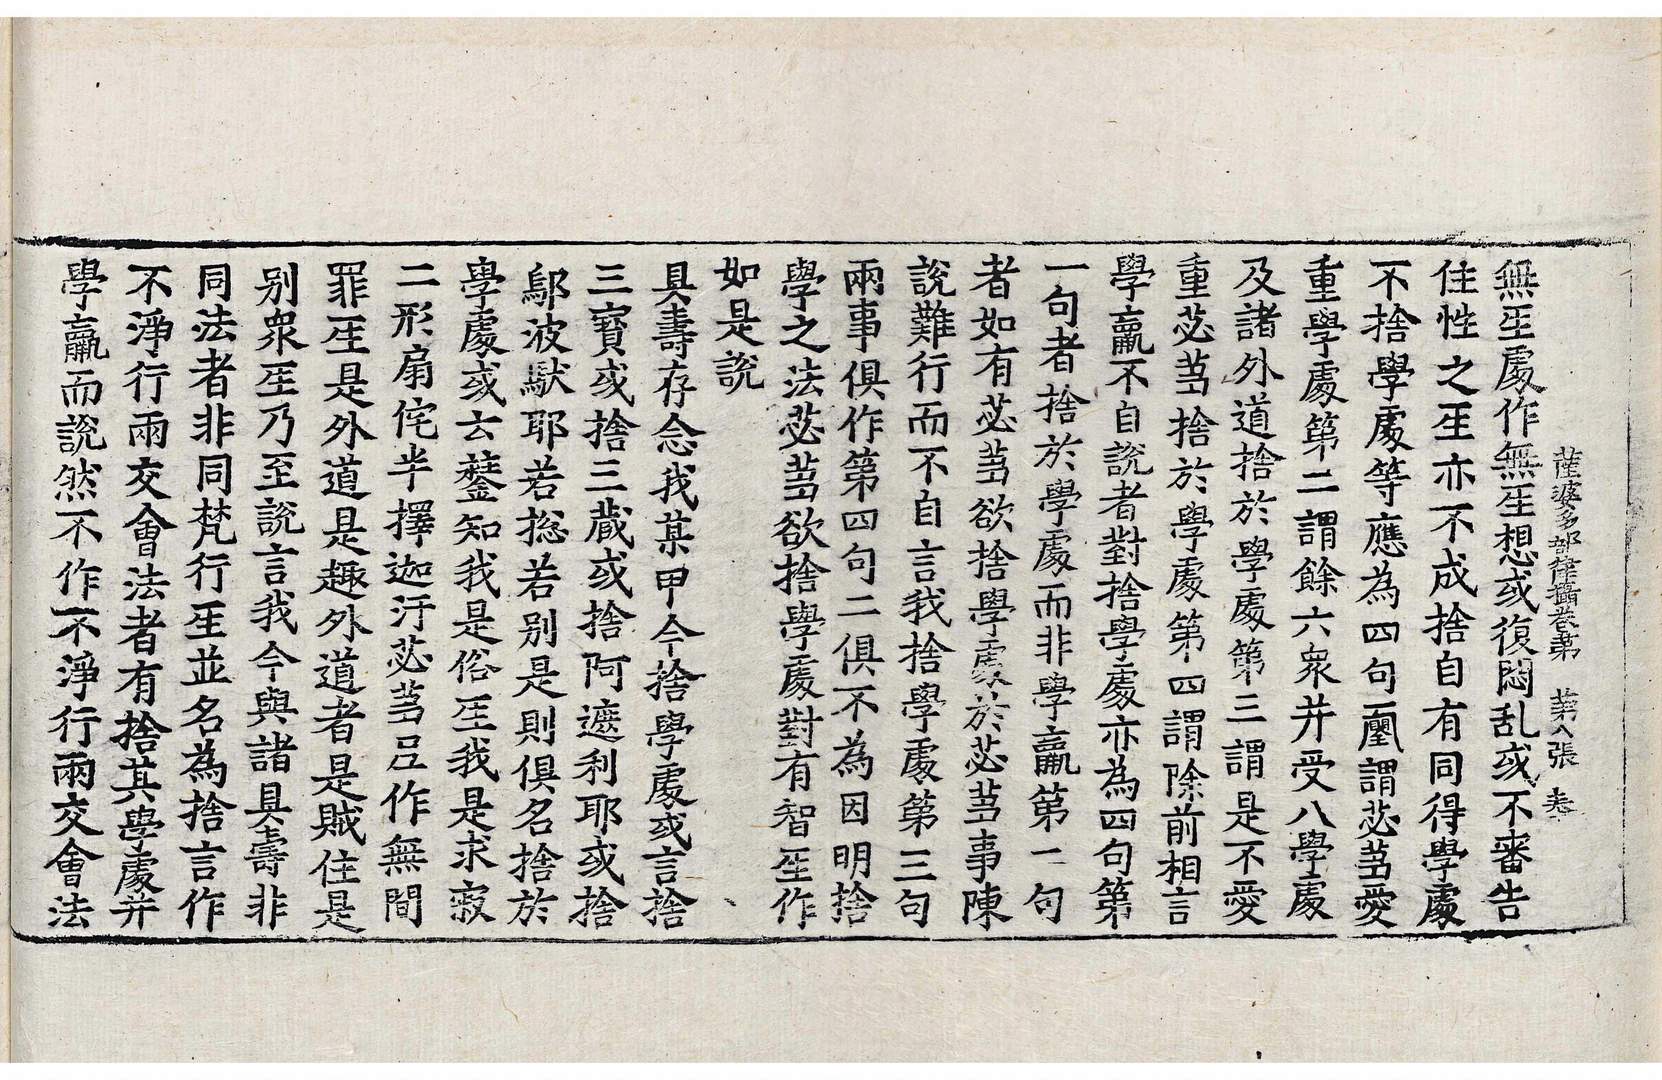 薩婆多部律攝卷第 第八張 恭
無𤯔處作無𤯔想或復悶乱或不審告
住性之𤯔亦不成捨自有同得學處
不捨學處等應為四句謂苾芻愛
重學處第二謂餘六衆并受八學處
及諸外道捨於學處第三謂是不愛
重苾芻捨於學處第四謂除前相言
學羸不自說者對捨學處亦為四句第
一句者捨於學處而非學羸第二句
者如有苾芻欲捨學處於苾芻事陳
說難行而不自言我捨學處第三句
兩事俱作第四句二俱不為因明捨
學之法苾芻欲捨學處對有智𤯔作
如是說
具壽存念我某甲今捨學處或言捨
三寶或捨三藏或捨阿遮利耶或捨
鄔波馱耶若捴若別是則俱名捨於
學處或云𨭖知我是俗𤯔我是求寂
二形扇侘半擇迦汙苾芻尼作無間
罪𤯔是外道是趣外道者是賊住是
別衆𤯔乃至說言我今與諸具壽非
同法者非同梵行𤯔並名為捨言作
不淨行兩交會法者有捨其學處并
學羸而說然不作不淨行兩交會法